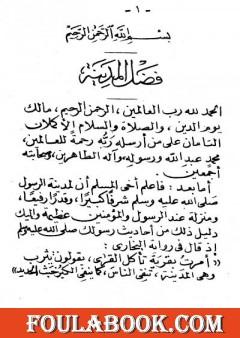 - ١ -
بسم الله الرحمن الرحيم
فضل المدينة
الحمد لله رب العالمين، الرحمن الرحيم، مالك
يوم الدين، والصلاة والسلام الأكملان
التامان على من أرسله ربه رحمة للعالمين،
محمد عبد الله ورسوله وآله الطاهرين، وصحابته
أجمعين.
أما بعد: فاعلم أخي المسلم أن لمدينة الرسول
صلى الله عليه وسلم شرفا كبيرا، وقدرا رفيعا،
ومنزلة عند الرسول والمؤمنين عظيمة وإليك
دليل ذلك من أحاديث رسولك صلى الله عليه وسلم
إذ قال في رواية البخاري:
« أمرت بقرية تأكل القرى، يقولون يثرب
وهي المدينة، تنفي الناس، كما ينفي الكير خبث الحديد »
FOULABOOK.COM